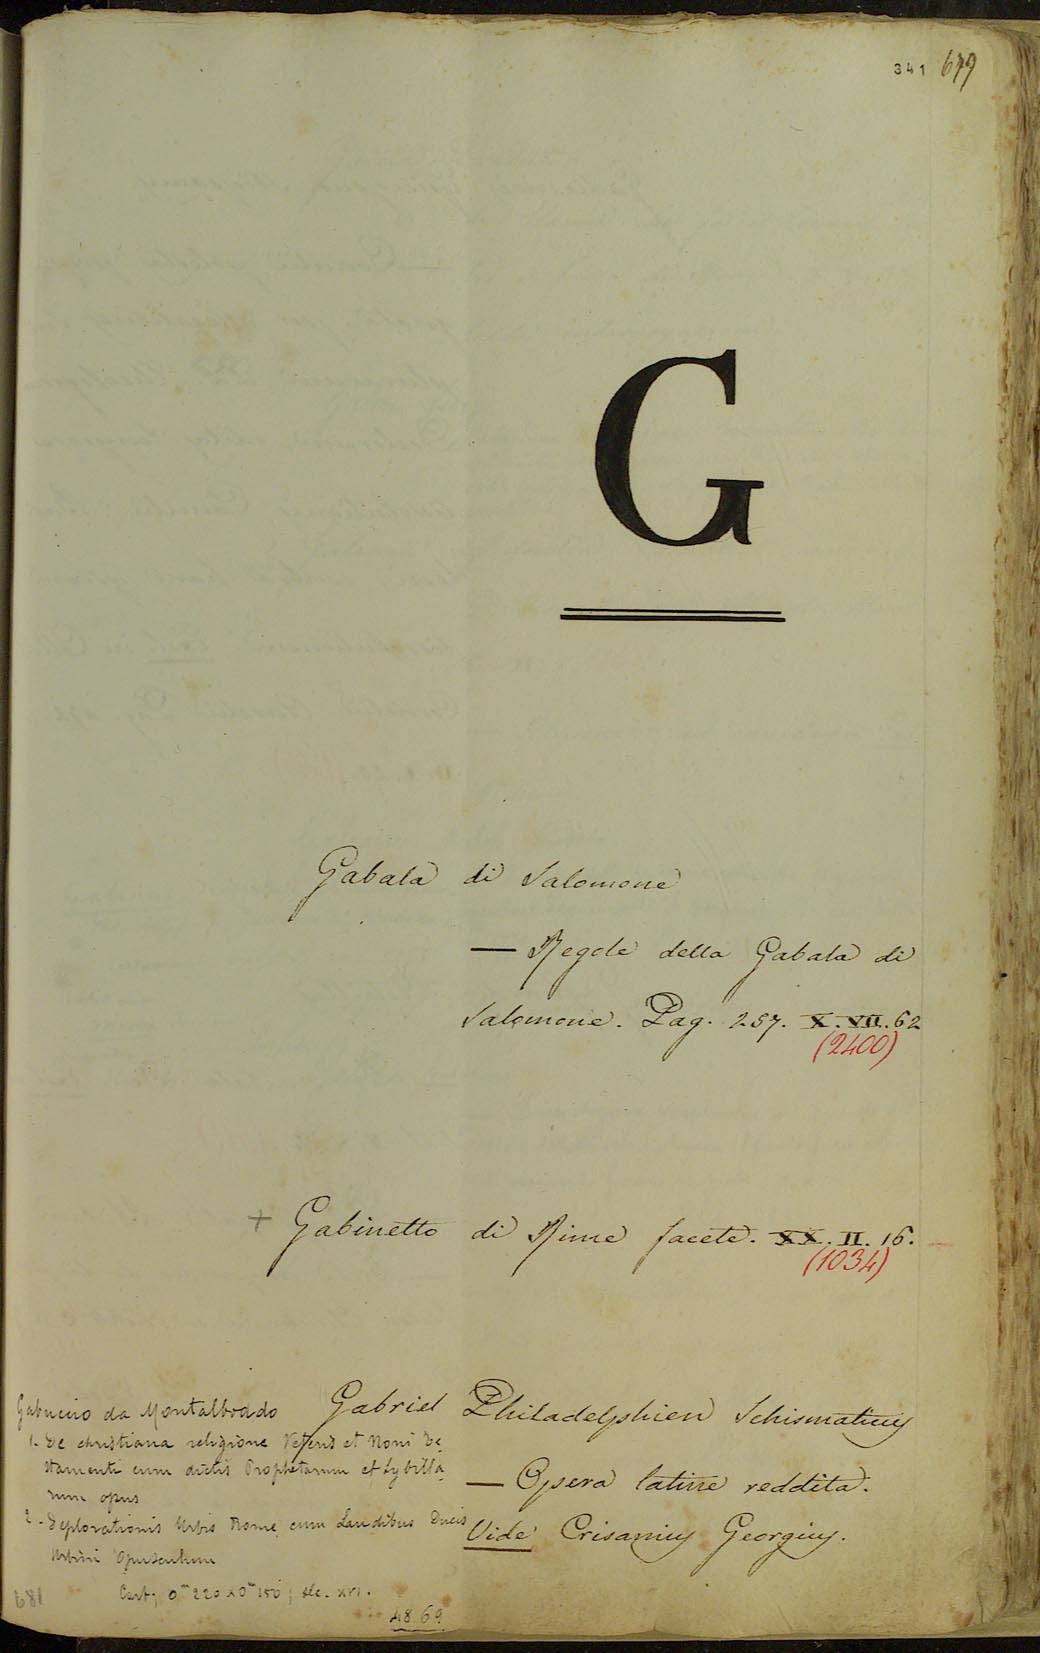 341 679
G
Gabala di Salomone
— Regole della Gabala di
Salomone. Pag. 257. X. VII. 62
(2400)
+ Gabinetto di Rime facete. XX. II. 16.
(1034)
Gabriel Philadelphien Schismaticus
— Opera latine reddita.
Vide Crisanius Georgius.
Gabuccio da Montalboddo
1. De christiana religione Veteris et Noni Te
stamenti cum dictis Prophetarum et Sybilla
rum opus
2 - Deplorationis Urbis Rome cum Laudibus Ducis
Urbini Opusculum
Cart; 0m 220 x 0m 150; sec. XVI.
4869
681